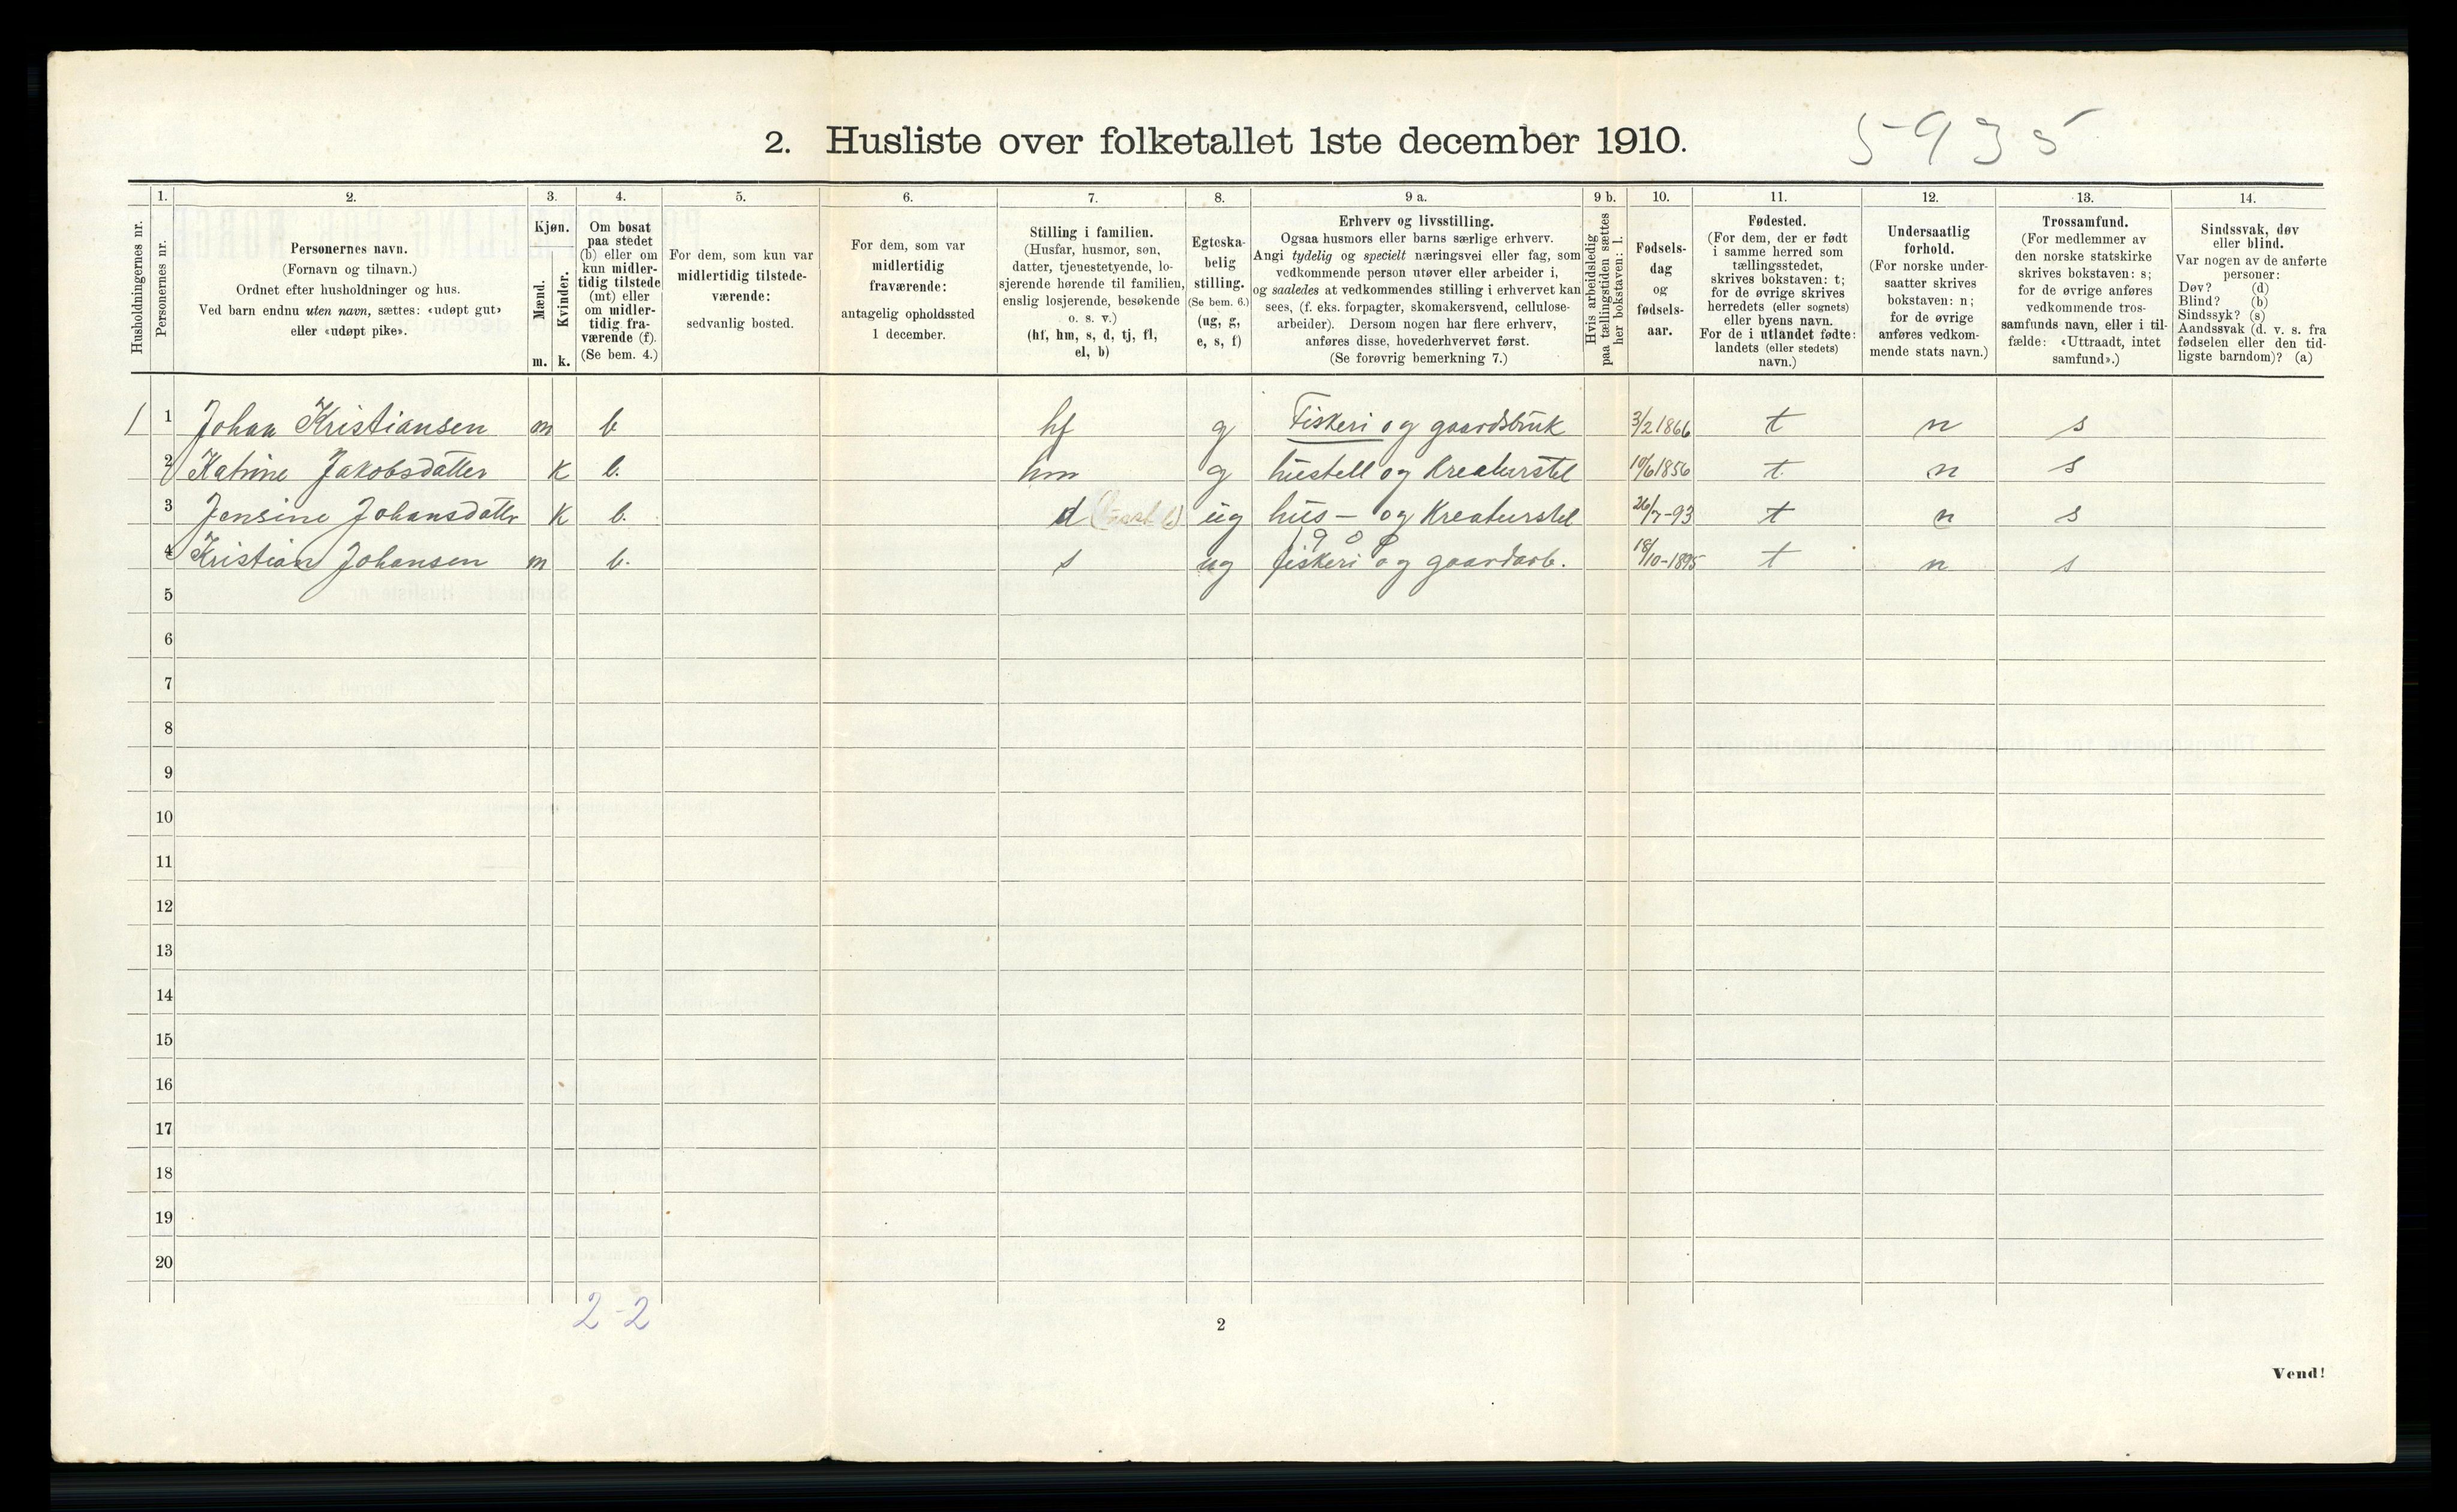 2. Husliste over folketallet 1ste december 1910.
5935
1. 2. 3. 4. 5. 6. 7. 8. 9 a. 9 b. 10. 11. 12. 13. 14.
Husholdningernes nr.
Personernes nr.
Personernes navn.
(Fornavn og tilnavn.)
Ordnet efter husholdninger og hus.
Ved barn endnu uten navn, sættes: «udøpt gut»
eller «udøpt pike».
Kjøn.
Mænd.
Kvinder.
m. k.
Om bosat
paa stedet
(b) eller om
kun midler-
tidig tilstede
(mt) eller
om midler-
tidig fra-
værende (f).
(Se bem. 4.)
For dem, som kun var
midlertidig tilstede-
værende:
sedvanlig bosted.
For dem, som var
midlertidig
fraværende:
antagelig opholdssted
1 december.
Stilling i familien.
(Husfar, husmor, søn,
datter, tjenestetyende, lo-
sjerende hørende til familien,
enslig losjerende, besøkende
o. s. v.)
(hf, hm, s, d, tj, fl,
el, b)
Egteska-
belig
stilling.
(Se bem. 6.)
(ug, g,
e, s, f)
Erhverv og livsstilling.
Ogsaa husmors eller barns særlige erhverv.
Angi tydelig og specielt næringsvei eller fag, som
vedkommende person utøver eller arbeider i,
og saaledes at vedkommendes stilling i erhvervet kan
sees, (f. eks. forpagter, skomakersvend, cellulose-
arbeider). Dersom nogen har flere erhverv,
anføres disse, hovederhvervet først.
(Se forøvrig bemerkning 7.)
Hvis arbeidsledig
paa tællingstiden sættes
her bokstaven: l.
Fødsels-
dag
og
fødsels-
aar.
Fødested.
(For dem, der er født
i samme herred som
tællingsstedet,
skrives bokstaven: t;
for de øvrige skrives
herredets (eller sognets)
eller byens navn.
For de i utlandet fødte:
landets (eller stedets)
navn.)
Undersaatlig
forhold.
(For norske under-
saatter skrives
bokstaven: n;
for de øvrige
anføres vedkom-
mende stats navn.)
Trossamfund.
(For medlemmer av
den norske statskirke
skrives bokstaven: s;
for de øvrige anføres
vedkommende tros-
samfunds navn, eller i til-
fælde: «Uttraadt, intet
samfund».)
Sindssvak, døv
eller blind.
Var nogen av de anførte
personer:
Døv? (d)
Blind? (b)
Sindssyk? (s)
Aandssvak (d. v. s. fra
fødselen eller den tid-
ligste barndom)? (a)
1 1 Johan Kristiansen m b hf g Fiskeri og gaardsbruk 3/2 1866 t n s
2 Katrine Jakobsdatter k b. hm g hustell og Kreaturstel 10/6 1856 t. n s
3 Jensine Johansdattr k b. d ug hus- og Kreaturstel 26/7-93 t n s
4 Kristian Johansen m b. s ug fiskeri og gaardarb. 18/10-1895 t n s
5
6
7
8
9
10
11
12
13
14
15
16
17
18
19
20
2-2
2
Vend!